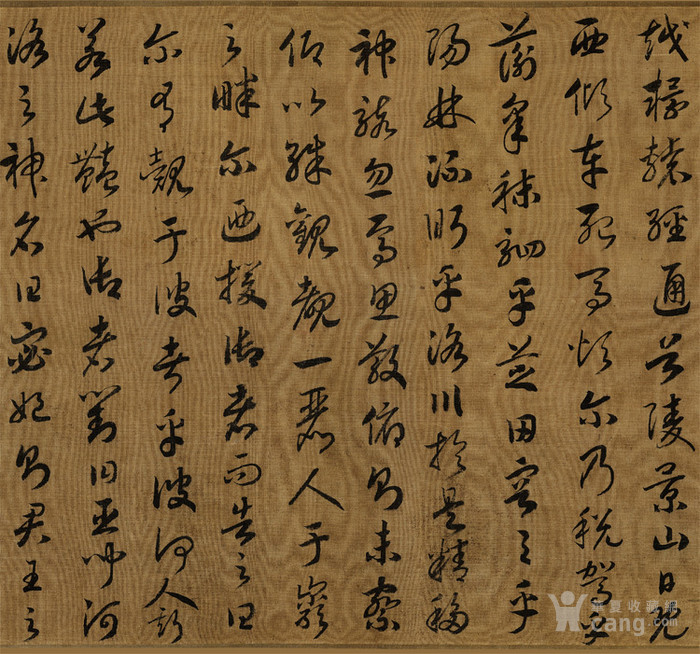 越轘轅經通谷陵景山日既
西傾車殆馬煩尔乃稅駕乎
蘅皋秣駟乎芝田容与乎
陽林流眄乎洛川於是精移
神駭忽焉思散俯則未察
仰以殊觀覩一麗人于巖
之畔尔迺援御者而告之曰
尔有覿于彼者乎彼何人斯
若此豔也御者對曰臣聞河
洛之神名曰宓妃則君王之
華夏收藏網
cang.com